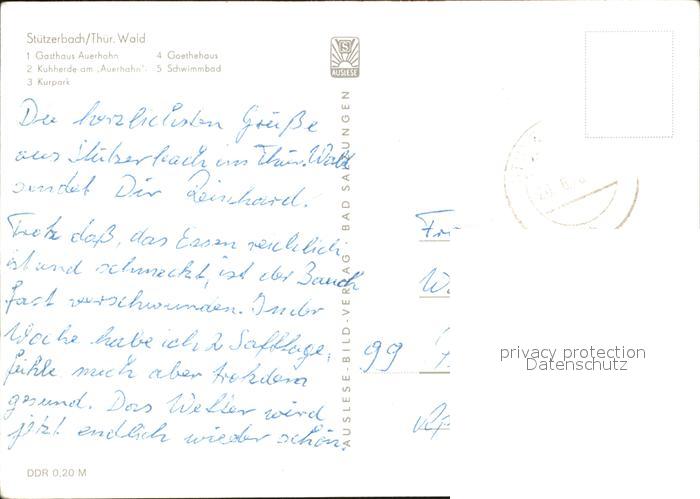 Stützerbach/Thür. Wald
1 Gasthaus Auerhahn 4 Goethehaus
2 Kuhherde am „Auerhahn“ 5 Schwimmbad
3 Kurpark
S
AUSLESE
Die herzlichsten Grüße
aus Stützerbach im Thür. Wald
sendet Dir Reinhard.
Trotz daß, das Essen reichlich
ist und schmeckt, ist der Bauch
fast verschwunden. In der
Woche habe ich 2 Safttage,
fühle mich aber trotzdem
gesund. Das Wetter wird
jetzt endlich wieder schön.
AUSLESE-BILD-VERLAG · BAD SALZUNGEN
99
privacy protection
Datenschutz
DDR 0,20 M